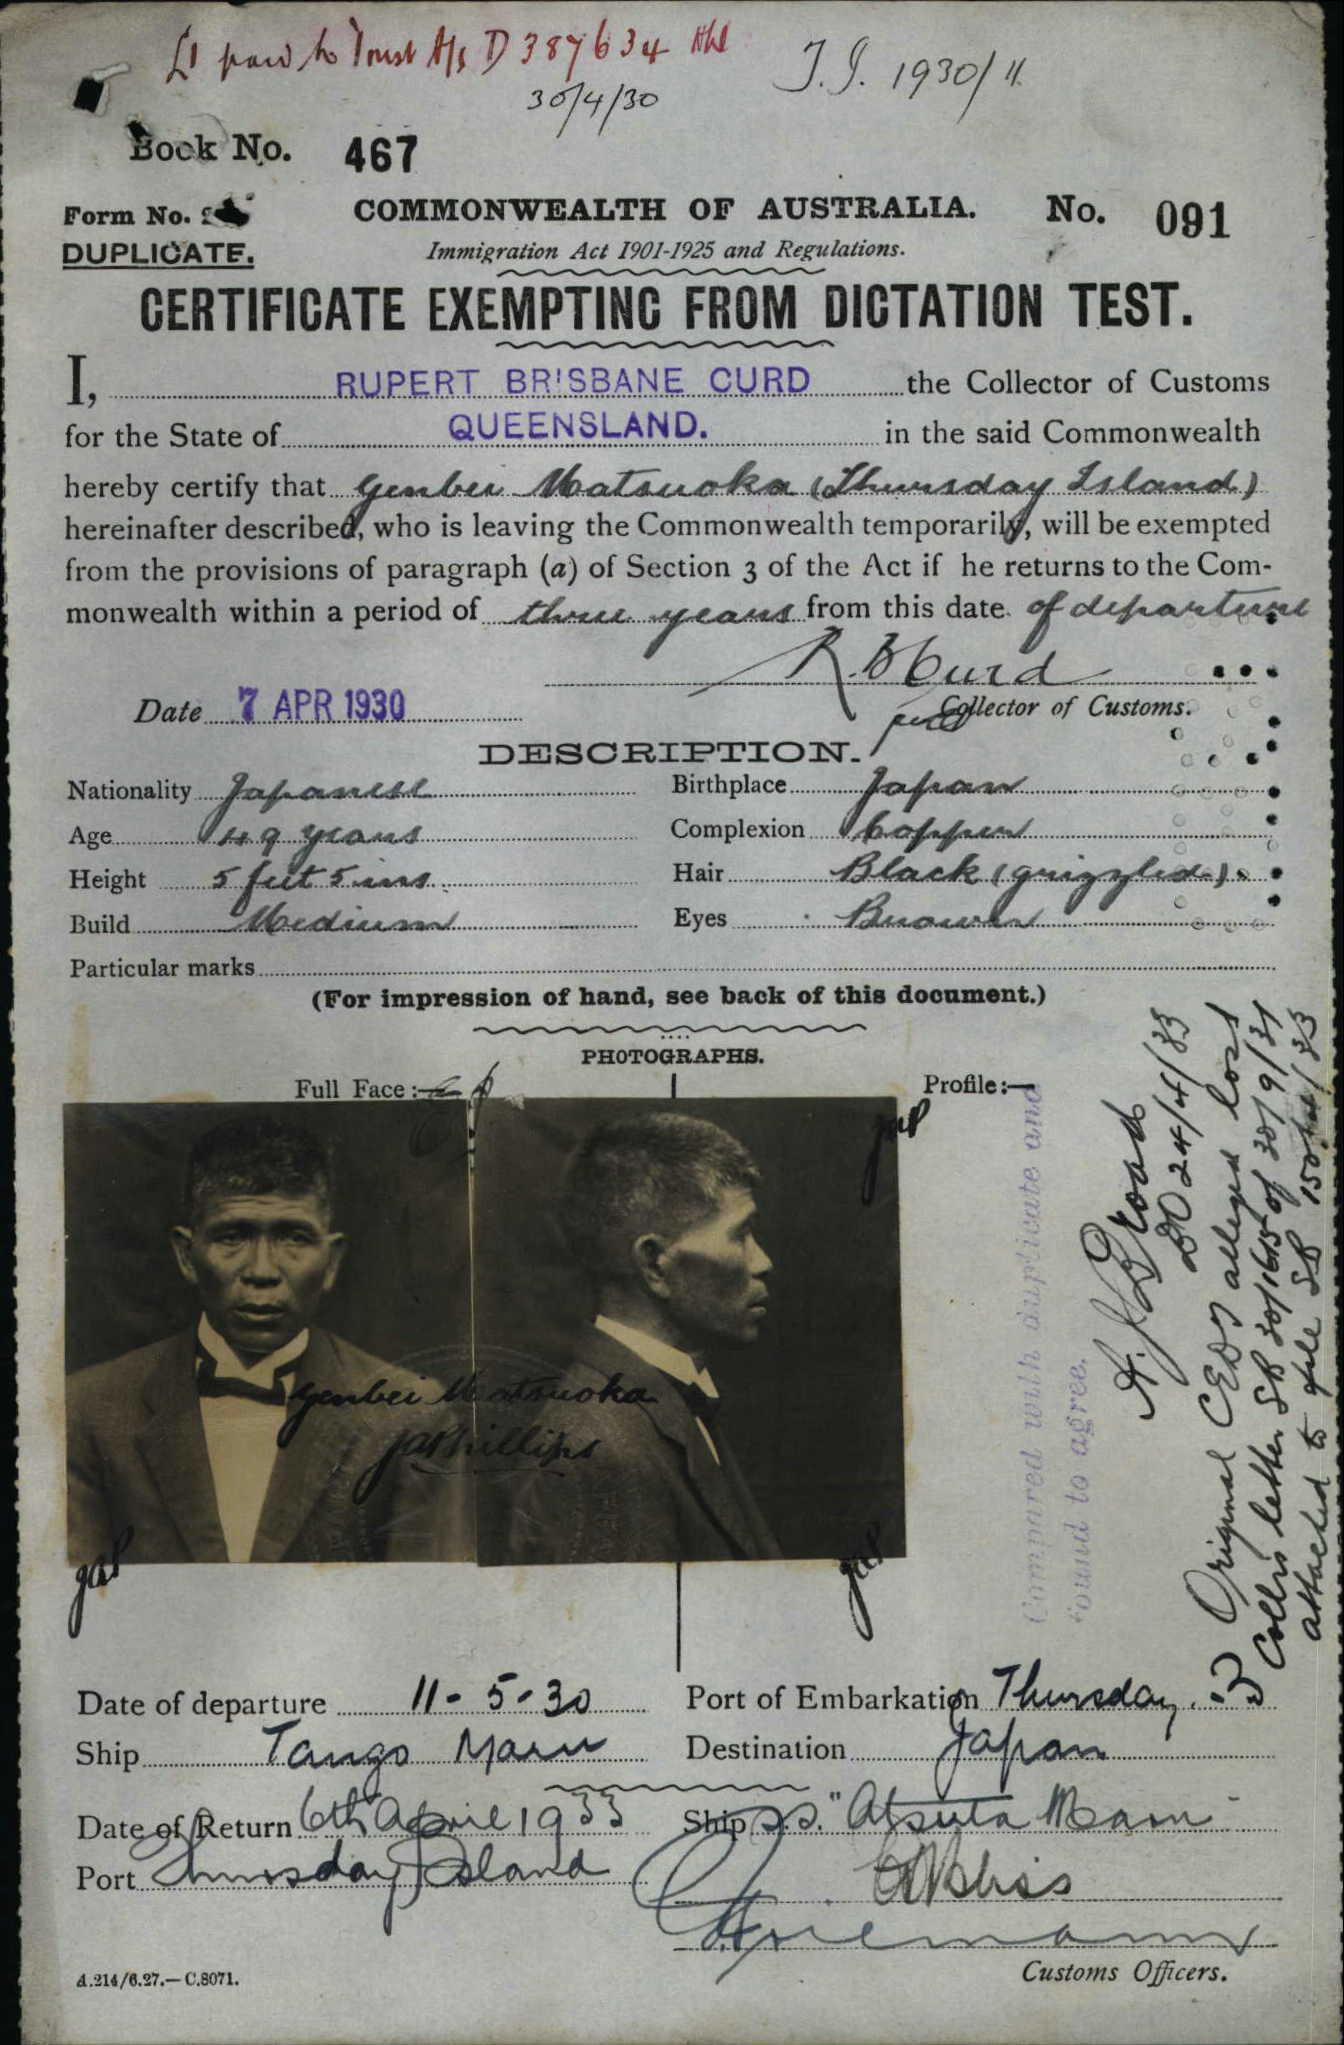 £1 paid to Trust A/c D 387634
30/4/30
T.I. 1930/11
Book No. 467
Form No.
DUPLICATE.
COMMONWEALTH OF AUSTRALIA.
No. 091
Immigration Act 1901-1925 and Regulations.
CERTIFICATE EXEMPTING FROM DICTATION TEST.
I, RUPERT BRISBANE CURD the Collector of Customs
for the State of QUEENSLAND. in the said Commonwealth
hereby certify that Genbei Matsuoka (Thursday Island)
hereinafter described, who is leaving the Commonwealth temporarily, will be exempted
from the provisions of paragraph (a) of Section 3 of the Act if he returns to the Com-
monwealth within a period of three years from this date of departure
R. B Curd
Date 7 APR 1930
Collector of Customs.
DESCRIPTION.
Nationality Japanese
Birthplace Japan
Age 49 years
Complexion Copper
Height 5 feet 5 ins.
Hair Black (grizzled)
Build Medium
Eyes Brown
Particular marks
(For impression of hand, see back of this document.)
PHOTOGRAPHS.
Full Face:—
Profile:—
JAP
Genbei Matsuoka
JAPhillips
JAP
JAP
Compared with duplicate and
found to agree.
24/4/33
Original CEDT alleged lost
Coll's letter SB 30/1615 of 30/9/31
attached to file SB
Date of departure 11-5-30
Port of Embarkation Thursday. I
Ship Tango Maru
Destination Japan
Date of Return 6th April 1933
Ship S.S. "Atsuta Maru"
Port Thursday Island
Customs Officers.
A.214/6.27.—C.8071.